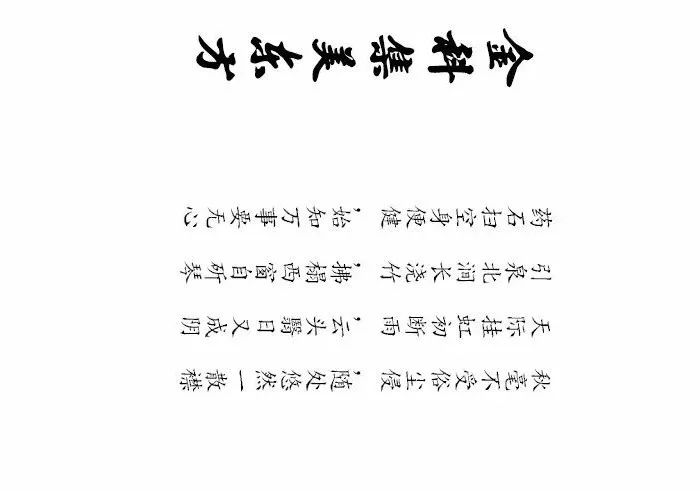 秋毫不受俗尘侵，随处悠然一散襟
天际挂虹初断雨，云头翳日又成阴
引泉北涧长浇竹，拂榻西窗自斫琴
药石扫空身便健，始知万事要无心
金科集美东方